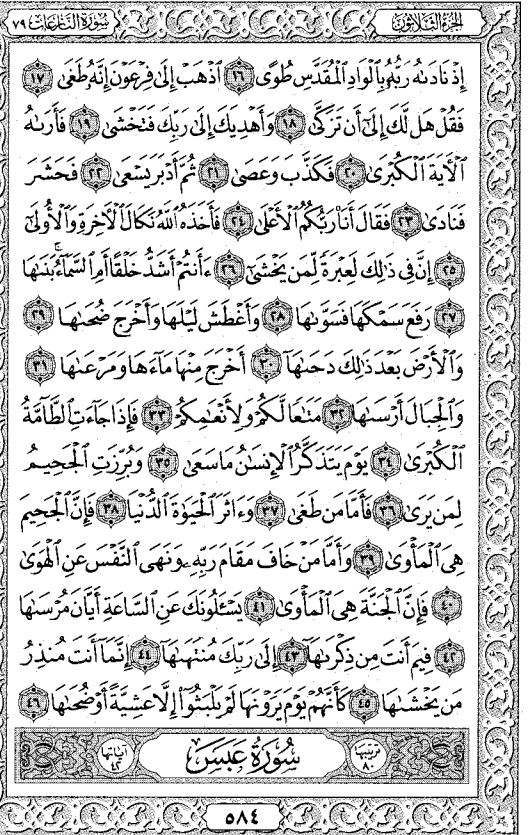 سُورَةُ النَّازِعَاتِ ٧٩ الجُزءُ الثَّلَاثُونَ
إِذْ نَادَىٰهُ رَبُّهُۥ بِٱلْوَادِ ٱلْمُقَدَّسِ طُوًى ١٦ ٱذْهَبْ إِلَىٰ فِرْعَوْنَ إِنَّهُۥ طَغَىٰ ١٧
فَقُلْ هَل لَّكَ إِلَىٰٓ أَن تَزَكَّىٰ ١٨ وَأَهْدِيَكَ إِلَىٰ رَبِّكَ فَتَخْشَىٰ ١٩ فَأَرَىٰهُ
ٱلْءَايَةَ ٱلْكُبْرَىٰ ٢٠ فَكَذَّبَ وَعَصَىٰ ٢١ ثُمَّ أَدْبَرَ يَسْعَىٰ ٢٢ فَحَشَرَ
فَنَادَىٰ ٢٣ فَقَالَ أَنَا۠ رَبُّكُمُ ٱلْأَعْلَىٰ ٢٤ فَأَخَذَهُ ٱللَّهُ نَكَالَ ٱلْءَاخِرَةِ وَٱلْأُولَىٰٓ
٢٥ إِنَّ فِى ذَٰلِكَ لَعِبْرَةً لِّمَن يَخْشَىٰٓ ٢٦ ءَأَنتُمْ أَشَدُّ خَلْقًا أَمِ ٱلسَّمَآءُ ۚ بَنَىٰهَا
٢٧ رَفَعَ سَمْكَهَا فَسَوَّىٰهَا ٢٨ وَأَغْطَشَ لَيْلَهَا وَأَخْرَجَ ضُحَىٰهَا ٢٩
وَٱلْأَرْضَ بَعْدَ ذَٰلِكَ دَحَىٰهَآ ٣٠ أَخْرَجَ مِنْهَا مَآءَهَا وَمَرْعَىٰهَا ٣١
وَٱلْجِبَالَ أَرْسَىٰهَا ٣٢ مَتَٰعًا لَّكُمْ وَلِأَنْعَٰمِكُمْ ٣٣ فَإِذَا جَآءَتِ ٱلطَّآمَّةُ
ٱلْكُبْرَىٰ ٣٤ يَوْمَ يَتَذَكَّرُ ٱلْإِنسَٰنُ مَا سَعَىٰ ٣٥ وَبُرِّزَتِ ٱلْجَحِيمُ
لِمَن يَرَىٰ ٣٦ فَأَمَّا مَن طَغَىٰ ٣٧ وَءَاثَرَ ٱلْحَيَوٰةَ ٱلدُّنْيَا ٣٨ فَإِنَّ ٱلْجَحِيمَ
هِىَ ٱلْمَأْوَىٰ ٣٩ وَأَمَّا مَنْ خَافَ مَقَامَ رَبِّهِۦ وَنَهَى ٱلنَّفْسَ عَنِ ٱلْهَوَىٰ
٤٠ فَإِنَّ ٱلْجَنَّةَ هِىَ ٱلْمَأْوَىٰ ٤١ يَسْـَٔلُونَكَ عَنِ ٱلسَّاعَةِ أَيَّانَ مُرْسَىٰهَا
٤٢ فِيمَ أَنتَ مِن ذِكْرَىٰهَآ ٤٣ إِلَىٰ رَبِّكَ مُنتَهَىٰهَآ ٤٤ إِنَّمَآ أَنتَ مُنذِرُ
مَن يَخْشَىٰهَا ٤٥ كَأَنَّهُمْ يَوْمَ يَرَوْنَهَا لَمْ يَلْبَثُوٓا۟ إِلَّا عَشِيَّةً أَوْ ضُحَىٰهَا ٤٦
ترتيبها ٨٠ سُورَةُ عَبَسَ آياتها ٤٢
٥٨٤